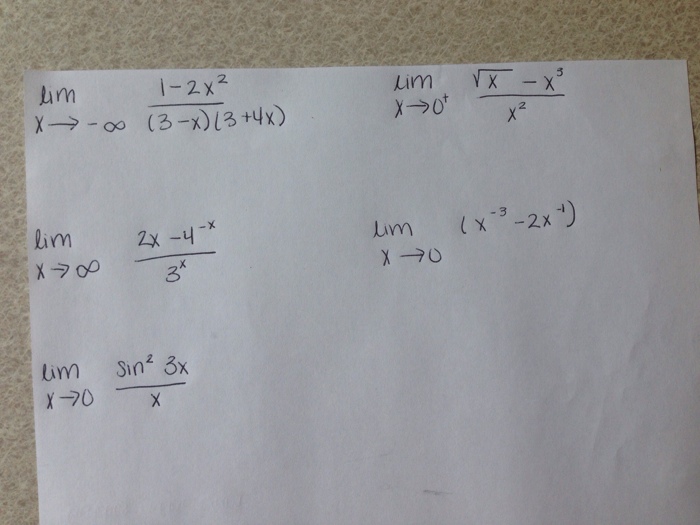 lim x→-∞ (1-2x²)/((3-x)(3+4x))
lim x→0⁺ (√x - x³)/x²
lim x→∞ (2x-4⁻ˣ)/3ˣ
lim x→0 (x⁻³-2x⁻¹)
lim x→0 (sin² 3x)/x